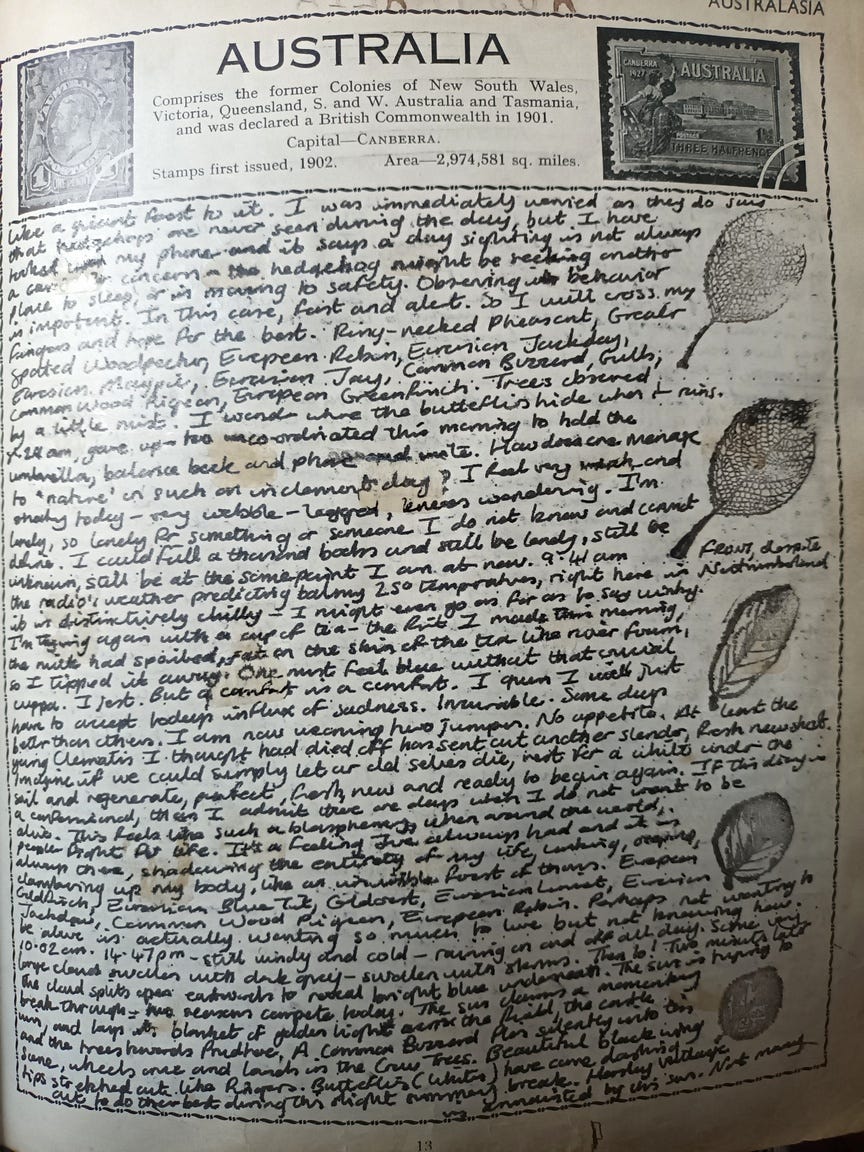 AUSTRALASIA
AUSTRALIA
Comprises the former Colonies of New South Wales,
Victoria, Queensland, S. and W. Australia and Tasmania,
and was declared a British Commonwealth in 1901.
Capital—CANBERRA.
Stamps first issued, 1902. Area—2,974,581 sq. miles.
CANBERRA 1927
AUSTRALIA
POSTAGE
THREE HALFPENCE
like a giant to it. I was immediately worried as they do say
that hedgehogs are never seen during the day, but I have
looked my phone and it says a day sighting is not always
a concern – the hedgehog might be seeking another
place to sleep, or is moving to safety. Observing its behavior
is important. In this case, fast and alert. So I will cross my
fingers and hope for the best. Ring-necked Pheasant, Greater
Spotted Woodpecker, European Robin, Eurasian Jackdaw,
Eurasian Magpie, Eurasian Jay, Common Buzzard, Gulls,
Common Wood Pigeon, European Greenfinch. Trees obscured
by a little mist. I wonder where the butterflies hide when it rains.
am, gave up – too unco-ordinated this morning to hold the
umbrella, balance book and phone and write. How does one manage
to "nature" on such an inclement day? I feel very weak and
shaky today – very wobble-legged, knees wandering. I'm
lonely, so lonely for something or someone I do not know and cannot
define. I could fill a thousand books and still be lonely, still be
unknown, still be at the same point I am at now. 9.41am FRONT, despite
the radio's weather predicting balmy 250 temperatures, right here in Northumberland
it is distinctively chilly – I might even go as far as to say wintry.
I'm trying again with a cup of tea – the first I made this morning,
the milk had spoiled, fat on the skin of the tea like river foam,
so I tipped it away. One must feel blue without that crucial
cuppa. I jest. But a comfort is a comfort. I guess I will just
have to accept today's influx of sadness. Invariable. Some days
better than others. I am now wearing two jumpers. No appetite. At least the
young Clematis I thought had died off has sent out another slender, fresh new shoot.
Imagine if we could simply let our old selves die, rest for a while under the
soil and regenerate, perfect, fresh, new and ready to begin again. If this diary is
a confessional, then I admit there are days when I do not want to be
alive. This feels like such a blasphemy when around the world,
people fight for life. It's a feeling I've always had and it is
always there, shadowing the entirety of my life, lurking,
clambering up my body, like an invisible forest of thorns. European
Goldfinch, Eurasian Blue Tit, Goldcrest, Eurasian Linnet, Eurasian
Jackdaw, Common Wood Pigeon, European Robin. Perhaps not wanting to
be alive is actually wanting so much to live but not knowing how.
10.02am. 14.47pm – still windy and cold – raining on and off all day. Some very
large clouds swollen with dark grey – swollen with storms. Then lo! Two minutes later
the cloud splits open eastwards to reveal bright blue underneath. The sun is trying to
break through – two seasons compete today. The sun claims a momentary
win, and lays its blanket of golden light across the field, the castle
and the trees towards Prudhoe, A Common Buzzard flies silently into this
scene, wheels once and lands in the Crow Trees. Beautiful black wing
tips stretched out like fingers. Butterflies (Whites) have come dashing
out to do their best during this slight summery break. Horsley Village
is annointed by this sun. Not many
13